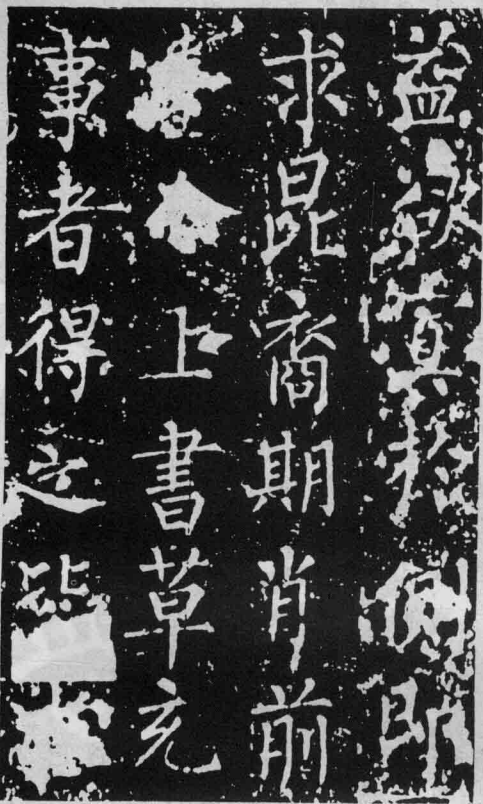 益欽慎於側即
求昆裔期肖前
上書草充
事者得之